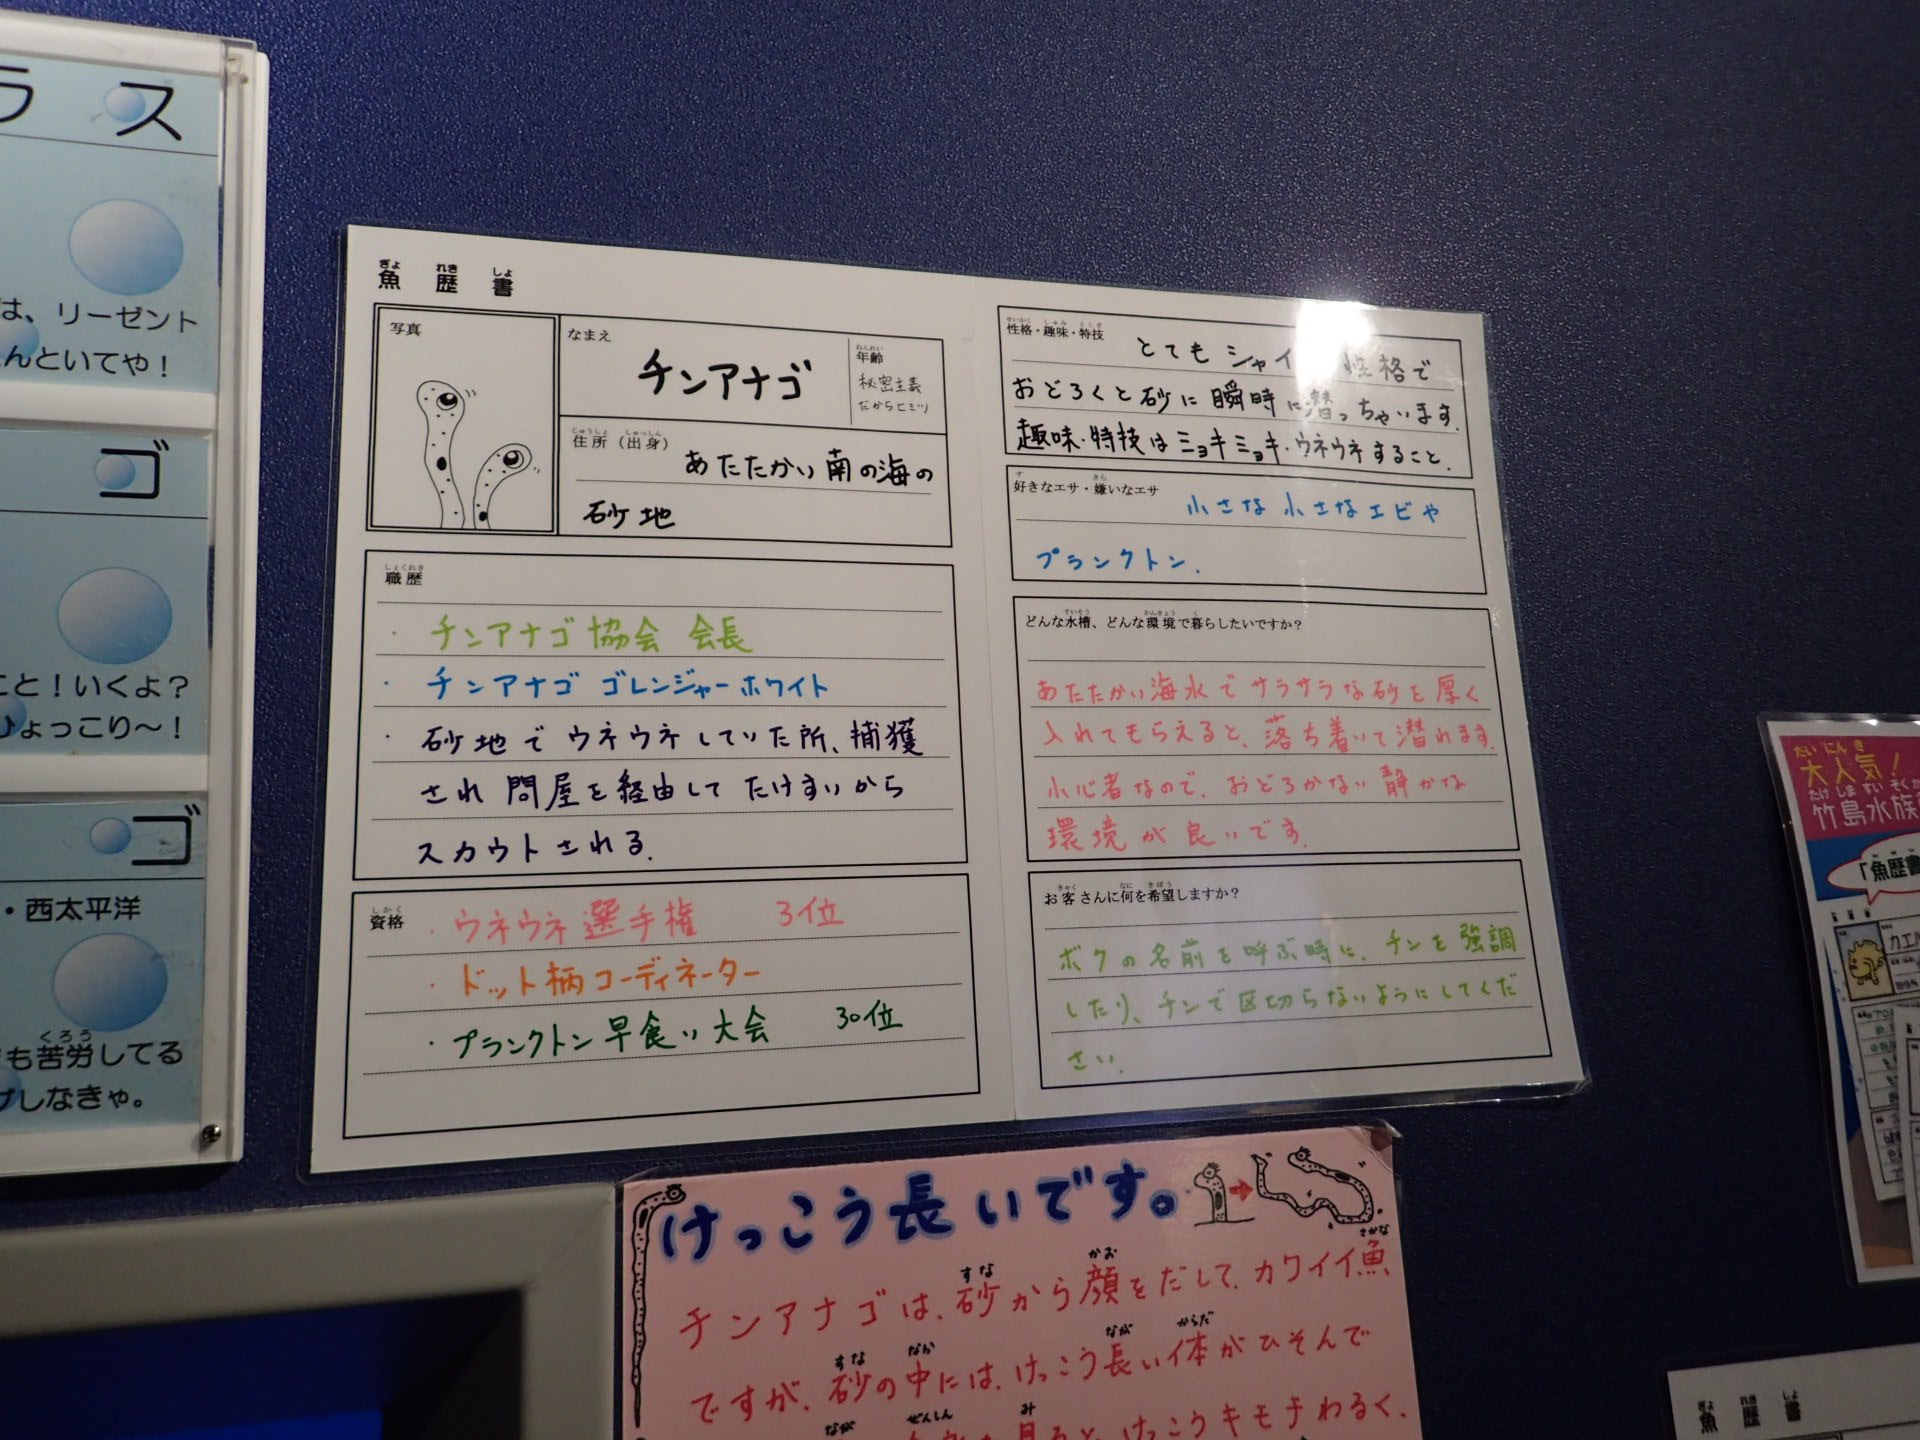 ラス
は、リーゼント
んといてや！
ゴ
こと！いくよ？
ひょっこり〜！
ゴ
・西太平洋
くろう
も苦労してる
しなきゃ。
ぎょ れき しょ
魚歴書
写真
なまえ
チンアナゴ
ねんれい
年齢
秘密主義
だからヒミツ
じゅうしょ しゅっしん
住所（出身）
あたたかい南の海の
砂地
しょくれき
職歴
・チンアナゴ協会 会長
・チンアナゴ ゴレンジャーホワイト
・砂地でウネウネしていた所、捕獲
され問屋を経由してたけすいから
スカウトされる.
しかく
資格
・ウネウネ選手権 3位
・ドット柄コーディネーター
・プランクトン早食い大会 30位
せいかく しゅみ とくぎ
性格・趣味・特技
とてもシャイ 性格で
おどろくと砂に瞬時に潜っちゃいます.
趣味・特技はニョキニョキ・ウネウネすること.
す きら
好きなエサ・嫌いなエサ
小さな小さなエビや
プランクトン.
すいそう かんきょう く
どんな水槽、どんな環境で暮らしたいですか？
あたたかい海水でサラサラな砂を厚く
入れてもらえると、落ち着いて潜れます.
小心者なので、おどろかない静かな
環境が良いです.
きゃく なに きぼう
お客さんに何を希望しますか？
ボクの名前を呼ぶ時に、チンを強調
したり、チンで区切らないようにしてくだ
さい.
けっこう長いです。
すな かお さかな
チンアナゴは、砂から顔をだして、カワイイ魚
すな なか なが からだ
ですが、砂の中には、けっこう長い体がひそんで
なが ぜんしん み
見ると、けっこうキモチわるく、
だいにんき
大人気！
たけしますいぞくか
竹島水族
「魚歴書
カエル
ぎょ れき しょ
魚歴書